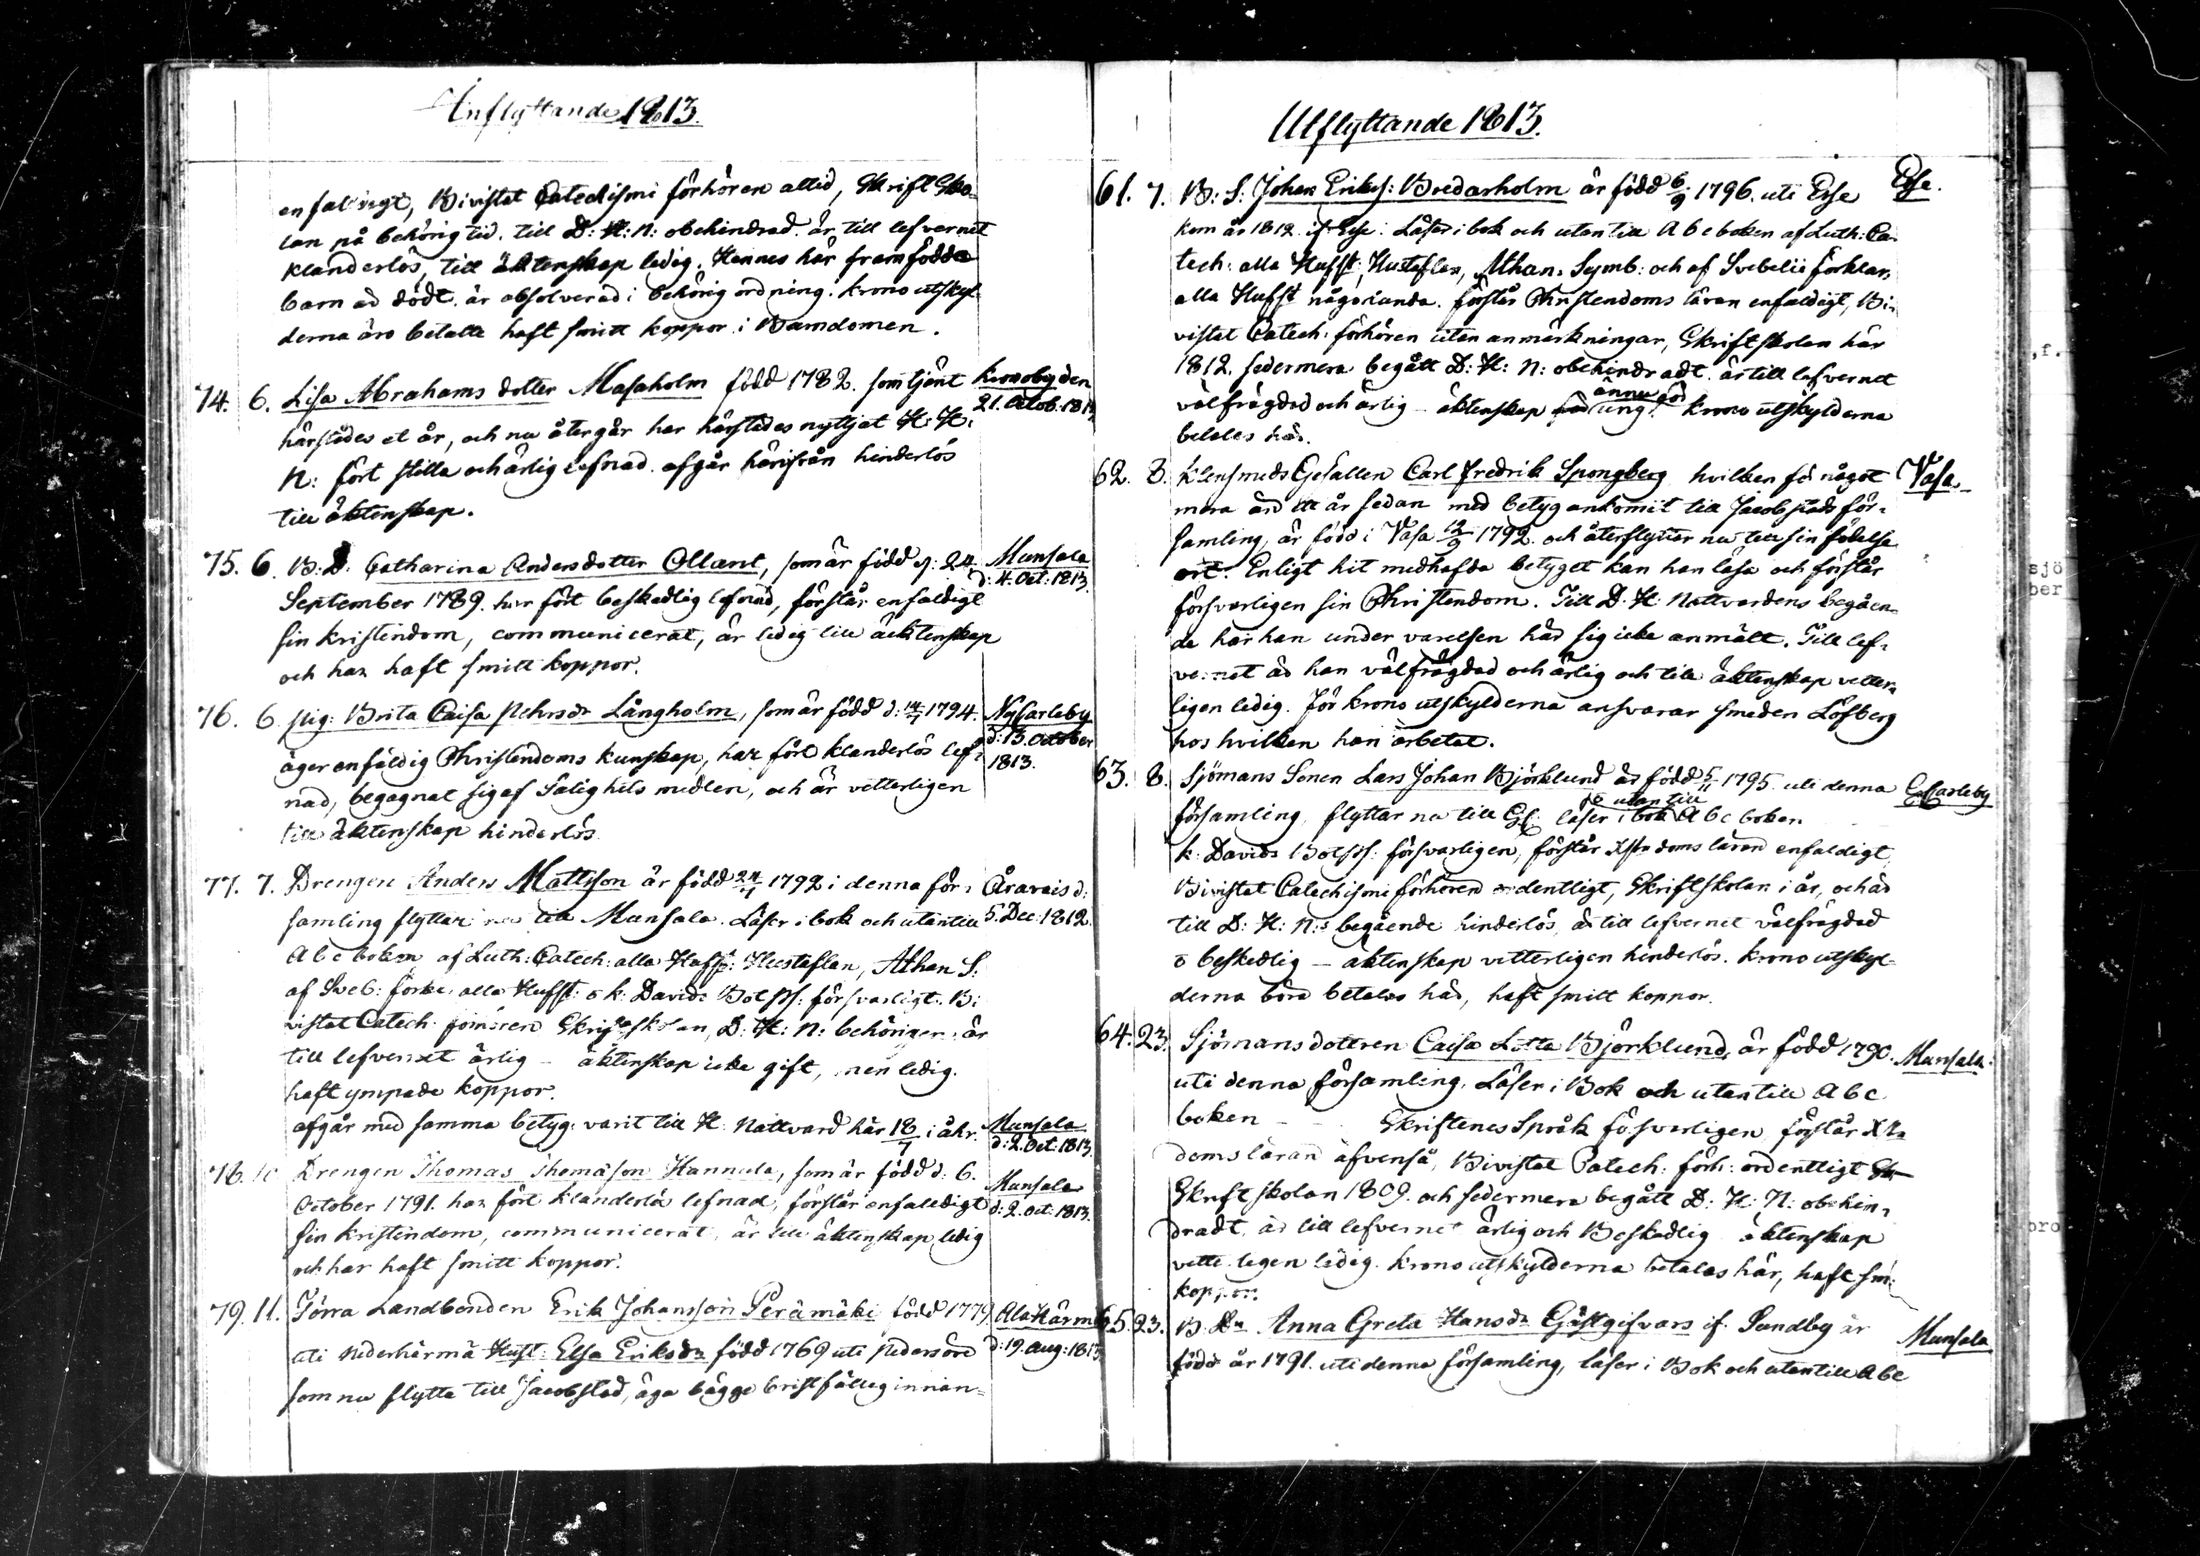 Inflyttande 1813.
enfaldigt, Bivistat Catechismi förhören altid, Skrift Sko-
lan på behörig tid. till D: H: N: obehindrad. är till lefvernet
klanderlös, till äktenskap ledig. Hennes här framfödda
barn är dödt. är absolverad i behörig ordning. krono utskyl-
derna äro betalte haft smitt koppor i Barndomen.
74. 6. Lisa Abrahams dotter Masaholm född 1782. som tjent
Kronoby den
21. Octob. 1813
härstädes et år, och nu återgår har härstädes nyttjat H: H:
N: fört stilla och ärlig lefnad. afgår härifrån hinderlös
till äktenskap.
75. 6. B. D. Catharina Andersdotter Ollant, som är född d: 24
Munsala
d: 4. Oct: 1813.
September 1789. har fört beskedlig lefnad, förstår enfaldigt
sin kristendom, communicerat, är ledig till äcktenskap
och har haft smitt koppor.
76. 6 pig: Brita Caisa Pehrsdr Långholm, som är född d: 14/7 1794.
NyCarleby
d: 13. October
1813.
äger enfäldig Christendoms kunskap, har fört klanderlös lef-
nad, begagnat sig af Salighets medlen, och är vetterligen
till äktenskap hinderlös.
77. 7. Drengen Anders Mattsson är född 24/4 1792 i denna för-
Oravais d:
5. Dec: 1812.
samling flyttar nu till Munsala. Läser i bok och utantill
Abc boken af Luth: Catech: alla Hufst: Hustaflan, Athan S:
af Sveb: förkl. alla Hufst: o k: Davids Bot ps: försvarligt. Bi-
vistat Catech förhören Skriftskolan, D: H: N: behörigen. är
till lefvernet ärlig – äktenskap icke gift, men ledig.
haft ympade koppor.
afgår med samma betyg. varit till H. Nattvard här 18/7 i åhr.
Munsala
d: 2. Oct: 1813.
78. 10 Drengen Thomas Thomasson Hannula, som är född d: 6.
Munsala
d: 2. Oct: 1813.
October 1791. har fört klanderlös lefnad, förstår enfaldigt
sin kristendom, communicerat, är till äktenskap ledig
och har haft smitt koppor.
79. 11. Förra Landbonden Erik Johansson Perämäki född 1779
AlaHärmä
d: 19. aug: 1813
uti Nederhärmä Hust: Elsa Eriksdr född 1769 uti Pedersöre
som nu flytta till Jacobstad, äga bägge bristfällig innan-
Utflyttande 1813.
61. 7. B: S: Johan Eriks: Bredarholm är född 6/9 1796. uti Esse
Esse.
kom år 1812 if: Esse: Läser i bok och utantill Abc boken af Luth: Ca-
tech: alla Hufst: Hustaflan, Athan: Symb: och af Svebelii förklar,
alla Hufst någorlunda. förstår Christendoms läran enfaldigt, Bi-
vistat Catech: förhören utan anmärkningar, Skriftskolan här
1812. sedermera begått D: H: N: obehindradt. är till lefvernet
välfrägdad och ärlig – äktenskap ung. krono utskylderna
betalas här.
62. 8. Klensmeds Gesällen Carl Fredrik Spongberg hvilken för något
Vasa
mera än ett år sedan med betyg ankomit till Jacobstads för-
samling, är född i Vasa 12/9 1792. och återflyttar nu till sin födelse
ort. Enligt hit medhafda betyget kan han läsa och förstår
försvarligen sin Christendom. Till D. H: Nattvardens begåen-
de har han under varelsen här sig icke anmält. Till lef-
vernet är han välfrägdad och ärlig och till äktenskap vetter-
ligen ledig. För krono utskylderna ansvarar smeden Löfberg
hos hvilken han arbetat.
63. 8. Sjömans Sonen Lars Johan Björklund är född 5/11 1795. uti denna
G.Carleby
församling, flyttar nu till GC. läser i bok o utantill Abc boken
k. Davids Bot ps: försvarligen, förstår Xstndoms läran enfaldigt,
Bivistat Catechismi förhören ordentligt, Skriftskolan i år, och är
till D: H: N:s begående hinderlös, är till lefvernet välfrägdad
o beskedlig – äktenskap vetterligen hinderlös. krono utskyl-
derna böra betalas här, haft smitt koppor.
64. 23. Sjömans dottren Caisa Lotta Björklund, är född 1790.
Munsala
uti denna församling. Läser i Bok och utantill Abc
boken – Skriftenes Språk försvarligen förstår Xtn
doms läran äfvenså, Bivistat Catech: förh: ordentligt
Skriftskolan 1809. och sedermera begått D: H: N: obehin-
dradt, är till lefvernet ärlig och Beskedlig äktenskap
vetterligen ledig. krono utskylderna betalas här, haft sm:
koppor.
65. 23. B. Dr Anna Greta Hansdr Gästgifvars if. Sundby är
Munsala
född år 1791. uti denna församling, läser i Bok och utantill Abc